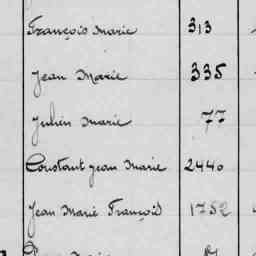 François Marie 313
Jean Marie 335
Julien Marie 77
Constant Jean Marie 2440
Jean Marie François 1752